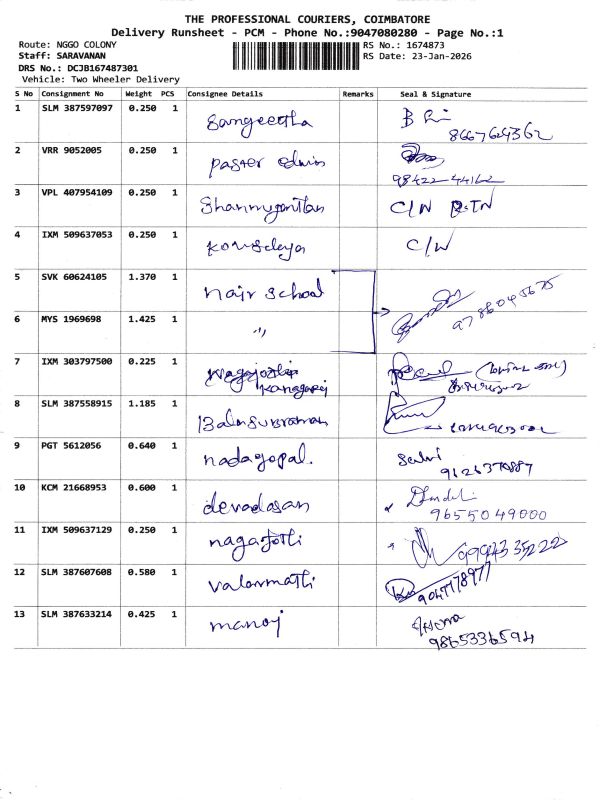 THE PROFESSIONAL COURIERS, COIMBATORE
Delivery Runsheet - PCM - Phone No.:9047080280 - Page No.:1
Route: NGGO COLONY
Staff: SARAVANAN
DRS No.: DCJB167487301
Vehicle: Two Wheeler Delivery
RS No.: 1674873
RS Date: 23-Jan-2026
S No Consignment No Weight PCS Consignee Details Remarks Seal & Signature
1 SLM 387597097 0.250 1 Sangeetha
8667624362
2 VRR 9052005 0.250 1 paster edwin
98422-44162
3 VPL 407954109 0.250 1 C/N
4 IXM 509637053 0.250 1 C/N
5 SVK 60624105 1.370 1 nair school
6 MYS 1969698 1.425 1 "
7 IXM 303797500 0.225 1
8 SLM 387558915 1.185 1 Balasubraman
9 PGT 5612056 0.640 1 nadagopal. Selvi
9126370887
10 KCM 21668953 0.600 1 devadasan
9655049000
11 IXM 509637129 0.250 1 nagajothi
12 SLM 387607608 0.580 1 valarmathi
9047178977
13 SLM 387633214 0.425 1 manoj
9865336594